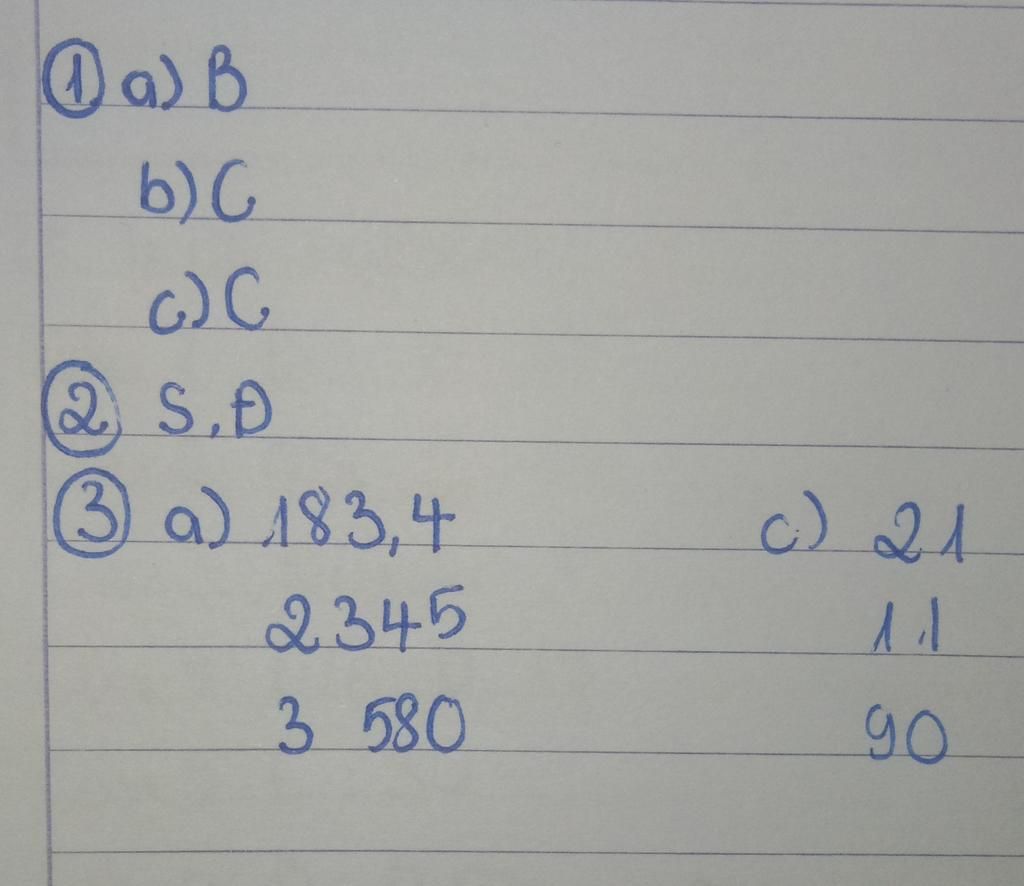 ① a) B
b) C
c) C
② S, Đ
③ a) 183,4 c) 21
2345 11
3 580 90